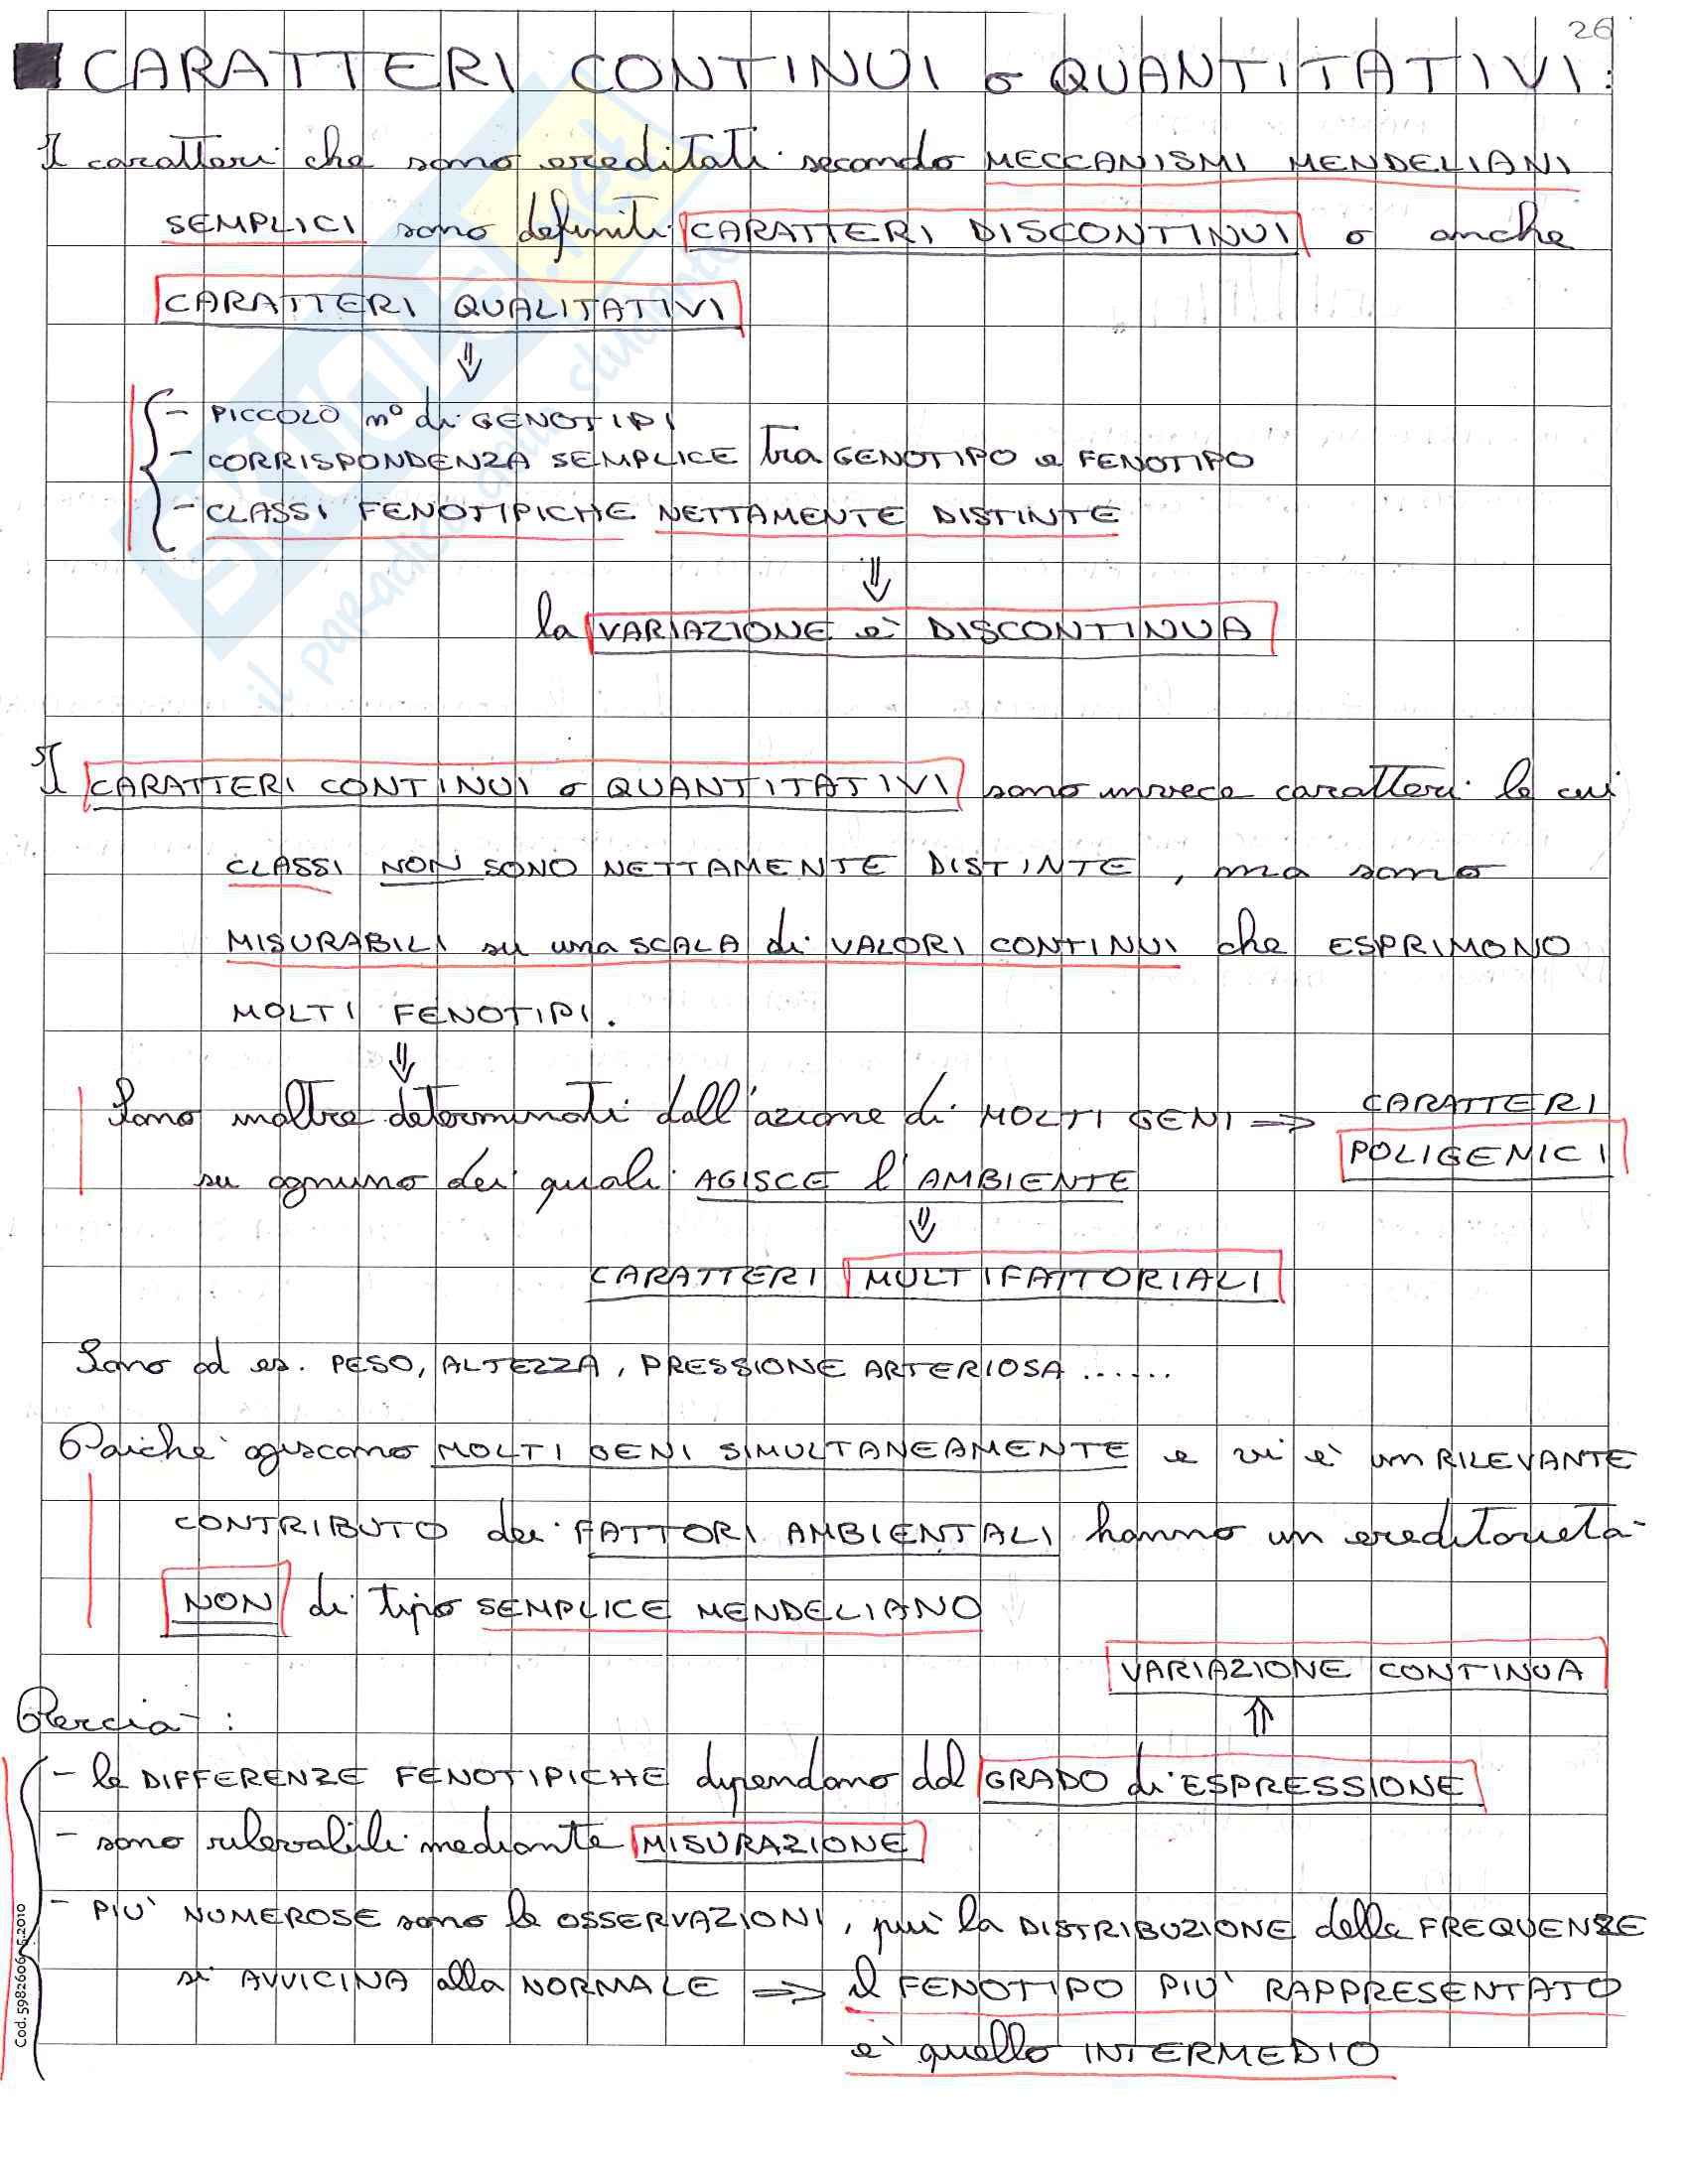 26
CARATTERI CONTINUI o QUANTITATIVI:
I caratteri che sono ereditati secondo MECCANISMI MENDELIANI
SEMPLICI sono definiti CARATTERI DISCONTINUI o anche
CARATTERI QUALITATIVI
⇓
- PICCOLO n° di GENOTIPI
- CORRISPONDENZA SEMPLICE tra GENOTIPO e FENOTIPO
- CLASSI FENOTIPICHE NETTAMENTE DISTINTE
⇓
la VARIAZIONE è DISCONTINUA
I CARATTERI CONTINUI o QUANTITATIVI sono invece caratteri le cui
CLASSI NON SONO NETTAMENTE DISTINTE, ma sono
MISURABILI su una SCALA di VALORI CONTINUI che ESPRIMONO
MOLTI FENOTIPI.
⇓
Sono inoltre determinati dall'azione di MOLTI GENI ⇒ CARATTERI
POLIGENICI
su ognuno dei quali AGISCE l'AMBIENTE
⇓
CARATTERI MULTIFATTORIALI
Sono ad es. PESO, ALTEZZA, PRESSIONE ARTERIOSA ......
Poiché agiscono MOLTI GENI SIMULTANEAMENTE e vi è un RILEVANTE
CONTRIBUTO dei FATTORI AMBIENTALI hanno un ereditarietà
NON di tipo SEMPLICE MENDELIANO
VARIAZIONE CONTINUA
⇑
Perciò:
- le DIFFERENZE FENOTIPICHE dipendono dal GRADO di ESPRESSIONE
- sono rilevabili mediante MISURAZIONE
- PIU' NUMEROSE sono le OSSERVAZIONI, più la DISTRIBUZIONE delle FREQUENZE
si AVVICINA alla NORMALE ⇒ il FENOTIPO PIU' RAPPRESENTATO
è quello INTERMEDIO
SKUOLA.net
il paradiso dello studente
Cod. 5982606.5.2010